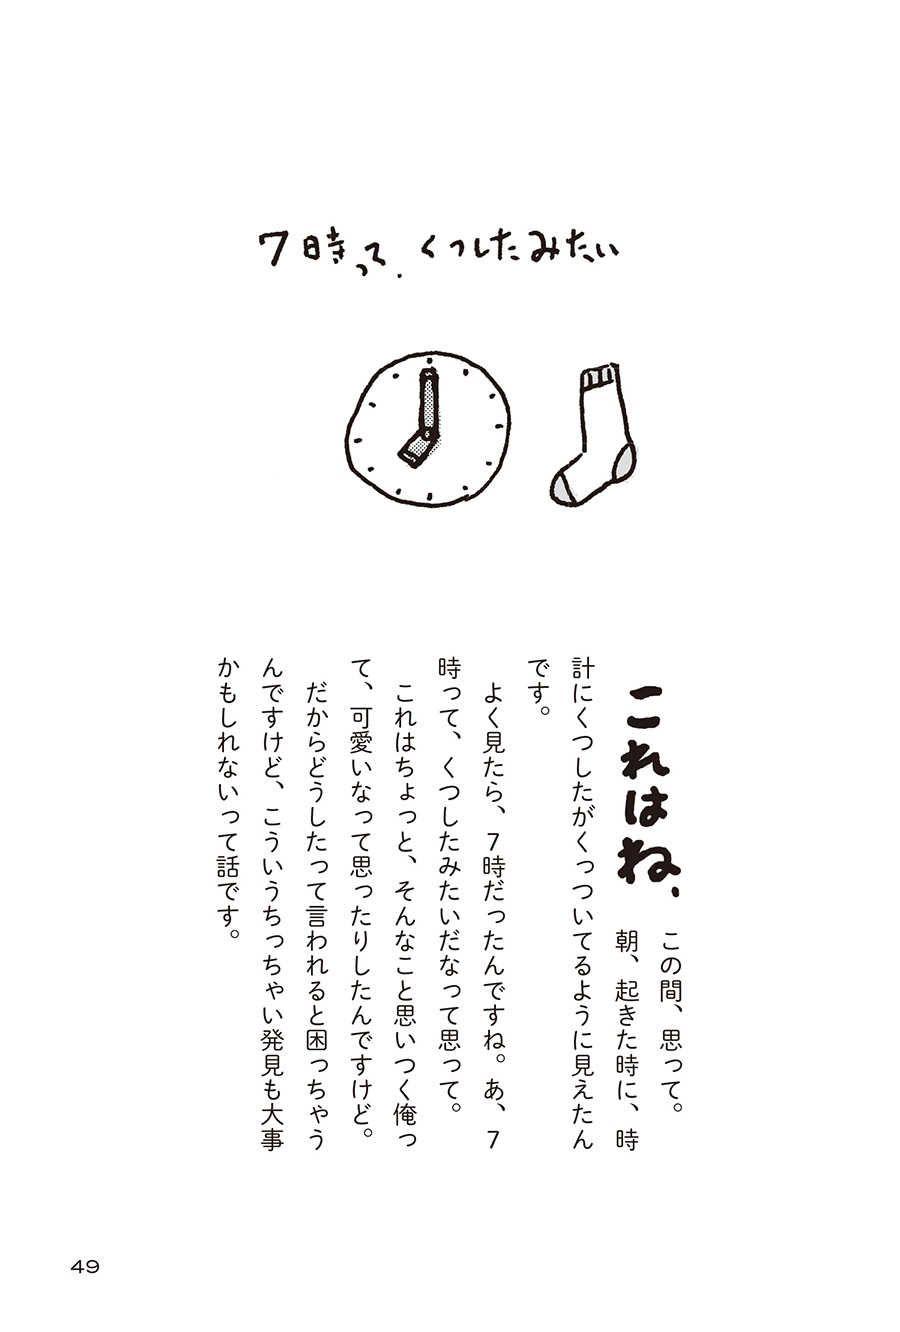 7時って、くつしたみたい
これはね、
この間、思って。
朝、起きた時に、時
計にくつしたがくっついてるように見えたん
です。
よく見たら、7時だったんですね。あ、7
時って、くつしたみたいだなって思って。
これはちょっと、そんなこと思いつく俺っ
て、可愛いなって思ったりしたんですけど。
だからどうしたって言われると困っちゃう
んですけど、こういうちっちゃい発見も大事
かもしれないって話です。
49